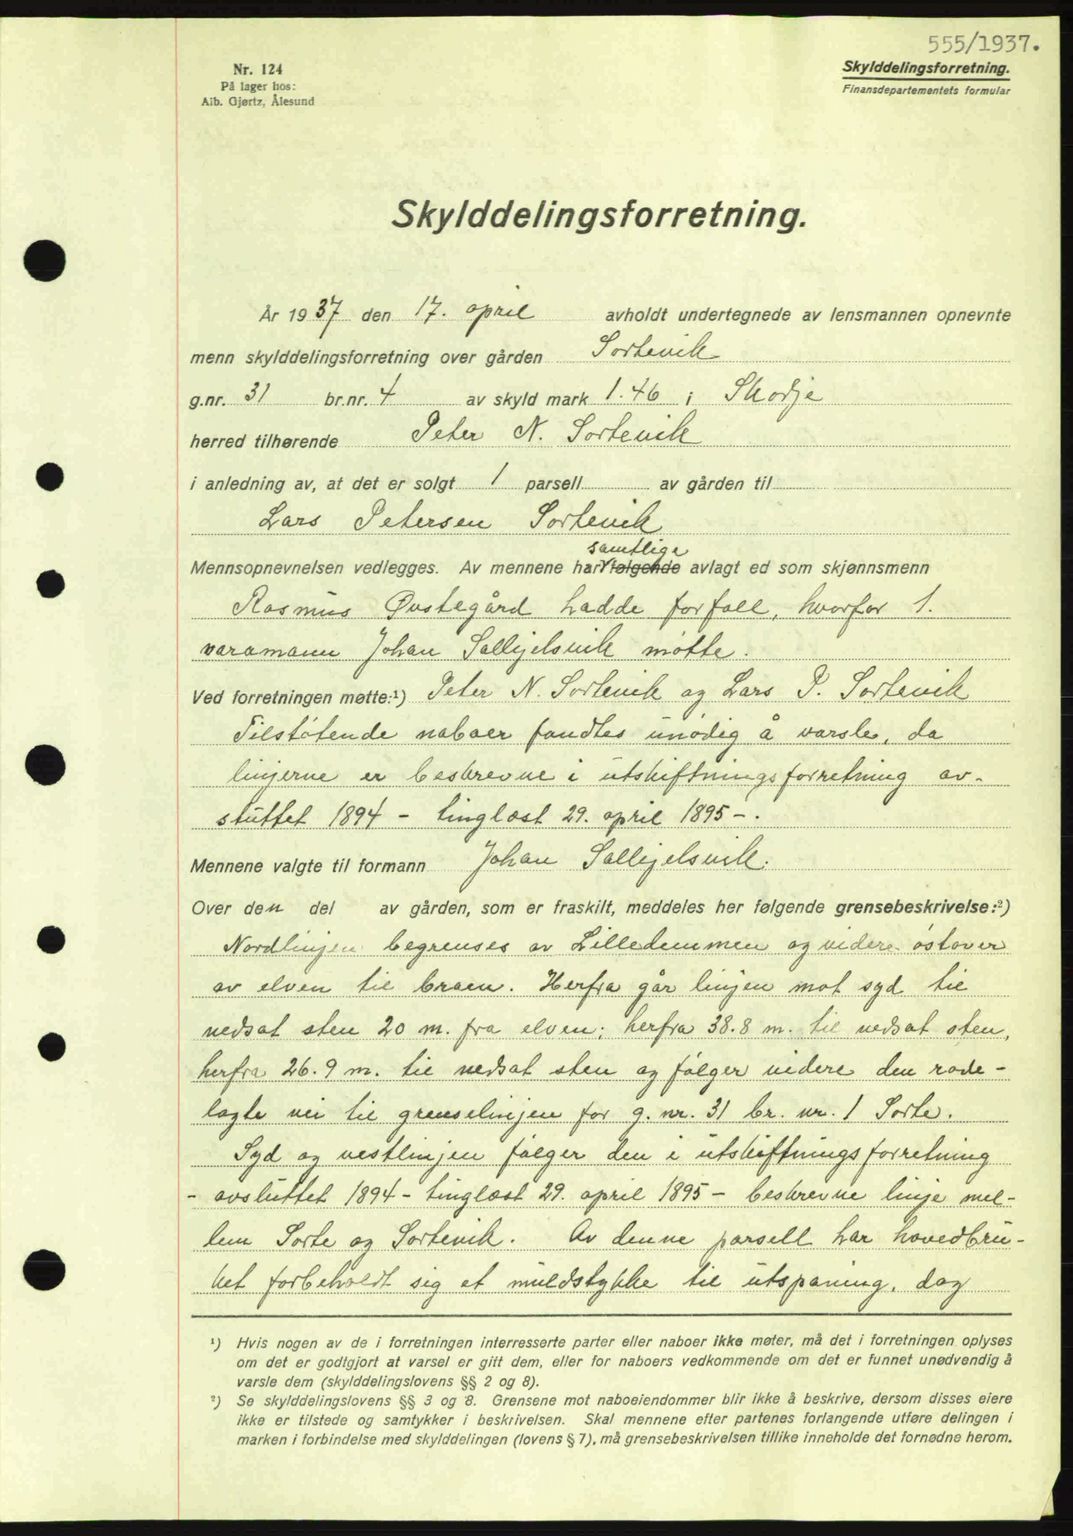 555/1937.
Nr. 124
På lager hos:
Alb. Gjørtz, Ålesund
Skylddelingsforretning.
Finansdepartementets formular
Skylddelingsforretning.
År 1937 den 17. april avholdt undertegnede av lensmannen opnevnte
menn skylddelingsforretning over gården Sortevik
g.nr. 31 br.nr. 4 av skyld mark 1.46 i Skodje
herred tilhørende Peter N. Sortevik
i anledning av, at det er solgt 1 parsell av gården til
Lars Petersen Sortevik
samtlige
Mennsopnevnelsen vedlegges. Av mennene har følgende avlagt ed som skjønnsmenn
Rasmus Øvstegård hadde forfall, hvorfor 1.
varamann Johan Sallejelsvik møtte.
Ved forretningen møtte:¹) Peter N. Sortevik og Lars P. Sortevik
Tilstøtende naboer fandtes unødig å varsle, da
linjerne er beskrevne i utskiftningsforretning av-
sluttet 1894 - tinglæst 29. april 1895 -.
Mennene valgte til formann Johan Sallejelsvik.
Over den del av gården, som er fraskilt, meddeles her følgende grensebeskrivelse:²)
Nordlinjen begrenses av Lilledemmen og videre østover
av elven til broen. Herfra går linjen mot syd til
nedsat sten 20 m. fra elven; herfra 38.8 m. til nedsat sten,
herfra 26.9 m. til nedsat sten og følger videre den rode-
lagte vei til grenselinjen for g. nr. 31 br. nr. 1 Sorte.
Syd og vestlinjen følger den i utskiftningsforretning
- avsluttet 1894 - tinglæst 29. april 1895 - beskrevne linje mel-
lem Sorte og Sortevik. Av denne parsell har hovedbru-
ket forbeholdt sig et muldstykke til utspaning, dog
¹) Hvis nogen av de i forretningen interresserte parter eller naboer ikke møter, må det i forretningen oplyses
om det er godtgjort at varsel er gitt dem, eller for naboers vedkommende om det er funnet unødvendig å
varsle dem (skylddelingslovens §§ 2 og 8).
²) Se skylddelingslovens §§ 3 og 8. Grensene mot naboeiendommer blir ikke å beskrive, dersom disses eiere
ikke er tilstede og samtykker i beskrivelsen. Skal mennene efter partenes forlangende utføre delingen i
marken i forbindelse med skylddelingen (lovens § 7), må grensebeskrivelsen tillike inneholde det fornødne herom.